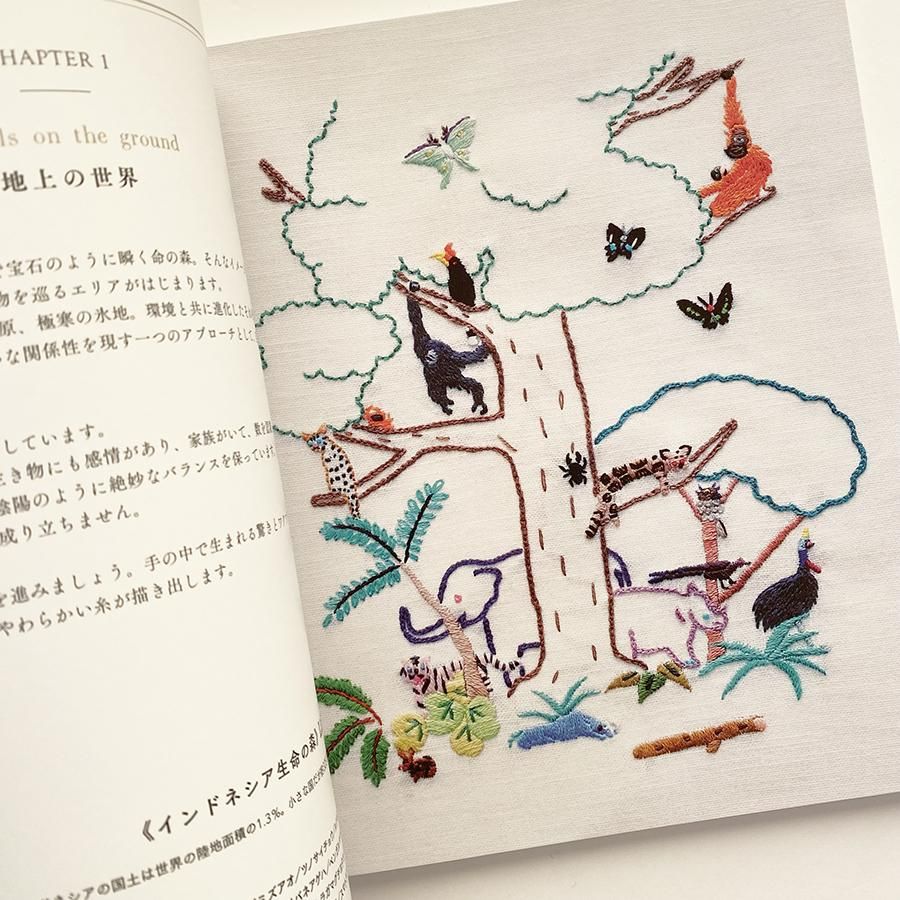 CHAPTER 1
on the ground
地上の世界
宝石のように瞬く命の森。そんなイメー
物を巡るエリアがはじまります。
原、極寒の氷地。環境と共に進化した
な関係性を現す一つのアプローチとし
しています。
生き物にも感情があり、家族がいて、
陰陽のように絶妙なバランスを保っています
成り立ちません。
を進みましょう。手の中で生まれる驚きと
やわらかい糸が描き出します。
《インドネシア生命の森》
ネシアの国土は世界の陸地面積の1.3%。小さな国
ミズアオ/ツノサイチョウ